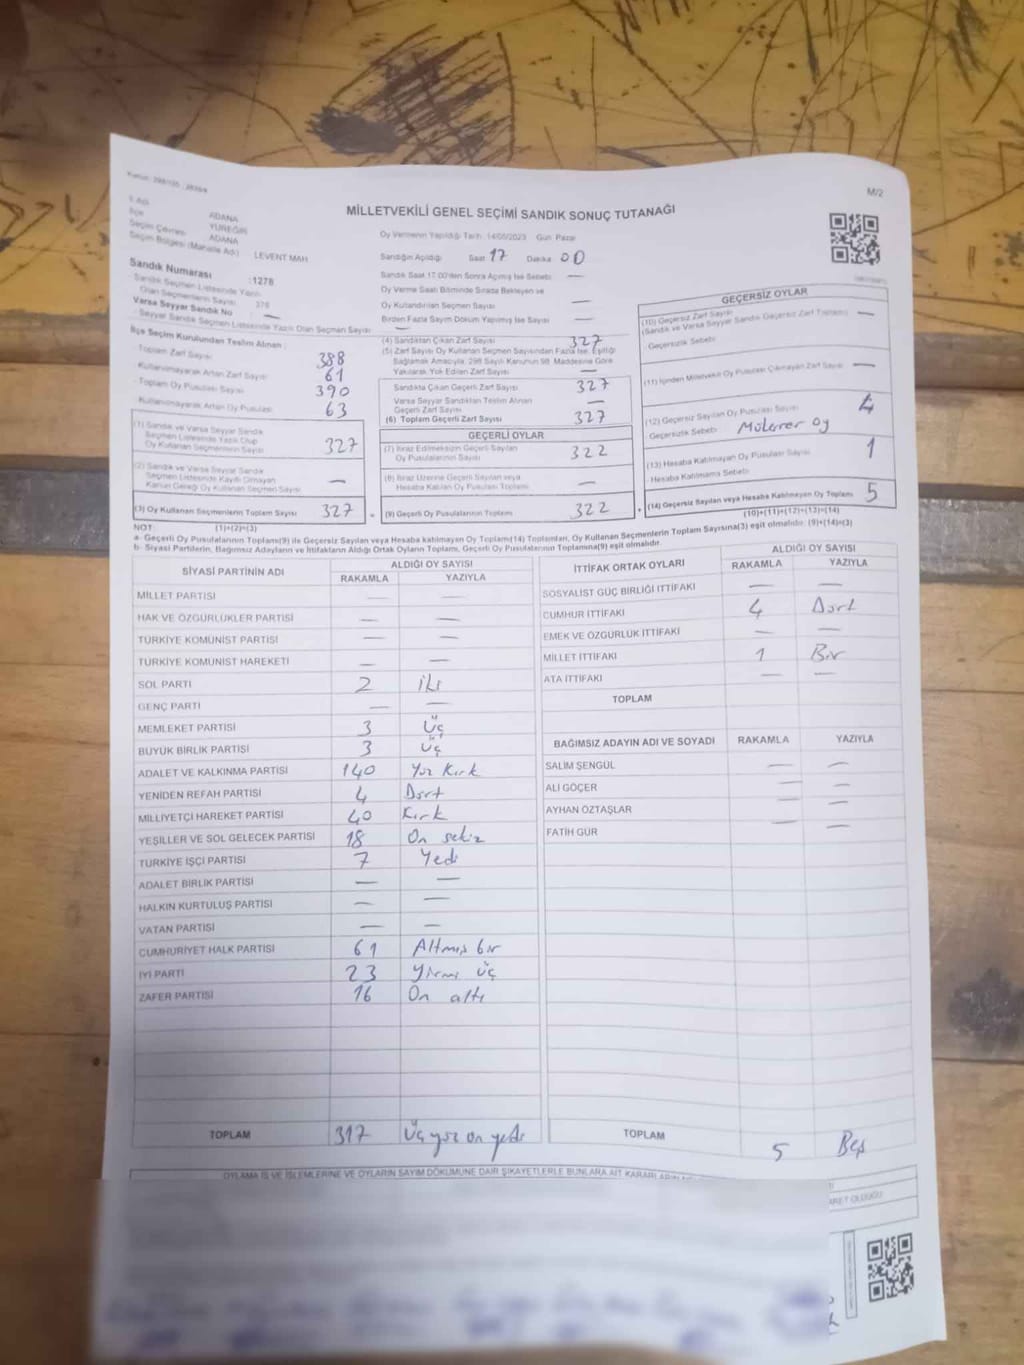 M/2
MİLLETVEKİLİ GENEL SEÇİMİ SANDIK SONUÇ TUTANAĞI
İl Adı ADANA
İlçe YÜREĞİR
Seçim Çevresi ADANA
Seçim Bölgesi (Mahalle Adı) LEVENT MAH
Sandık Numarası :1278
Sandık Seçmen Listesinde Yazılı
Olan Seçmenlerin Sayısı 378
Varsa Seyyar Sandık No —
Seyyar Sandık Seçmen Listesinde Yazılı Olan Seçmen Sayısı —
İlçe Seçim Kurulundan Teslim Alınan
Toplam Zarf Sayısı 388
Kullanılmayarak Artan Zarf Sayısı 61
Toplam Oy Pusulası Sayısı 390
Kullanılmayarak Artan Oy Pusulası 63
(1) Sandık ve Varsa Seyyar Sandık
Seçmen Listesinde Yazılı Olup
Oy Kullanan Seçmenlerin Sayısı 327
(2) Sandık ve Varsa Seyyar Sandık
Seçmen Listesinde Kayıtlı Olmayan
Kanun Gereği Oy Kullanan Seçmen Sayısı —
(3) Oy Kullanan Seçmenlerin Toplam Sayısı 327
(1)+(2)=(3)
Oy Vermenin Yapıldığı Tarih :14/05/2023 Gün: Pazar
Sandığın Açıldığı Saat 17 Dakika 00
Sandık Saat 17.00'den Sonra Açılmış İse Sebebi —
Oy Verme Saati Bitiminde Sırada Bekleyen ve
Oy Kullandırılan Seçmen Sayısı —
Birden Fazla Sayım Döküm Yapılmış İse Sayısı —
(4) Sandıktan Çıkan Zarf Sayısı 327
(5) Zarf Sayısı Oy Kullanan Seçmen Sayısından Fazla İse, Eşitliği
Sağlamak Amacıyla, 298 Sayılı Kanunun 98. Maddesine Göre
Yakılarak Yok Edilen Zarf Sayısı —
Sandıkta Çıkan Geçerli Zarf Sayısı 327
Varsa Seyyar Sandıktan Teslim Alınan
Geçerli Zarf Sayısı —
(6) Toplam Geçerli Zarf Sayısı 327
GEÇERLİ OYLAR
(7) İtiraz Edilmeksizin Geçerli Sayılan
Oy Pusulalarının Sayısı 322
(8) İtiraz Üzerine Geçerli Sayılan veya
Hesaba Katılan Oy Pusulası Toplamı —
(9) Geçerli Oy Pusulalarının Toplamı 322
GEÇERSİZ OYLAR
(10) Geçersiz Zarf Sayısı
(Sandık ve Varsa Seyyar Sandık Geçersiz Zarf Toplamı) —
Geçersizlik Sebebi
(11) İçinden Milletvekili Oy Pusulası Çıkmayan Zarf Sayısı —
(12) Geçersiz Sayılan Oy Pusulası Sayısı 4
Geçersizlik Sebebi Mükerrer oy
(13) Hesaba Katılmayan Oy Pusulası Sayısı 1
Hesaba Katılmama Sebebi
(14) Geçersiz Sayılan veya Hesaba Katılmayan Oy Toplamı 5
(10)+(11)+(12)+(13)=(14)
NOT:
a- Geçerli Oy Pusulaları Toplamı(9) ile Geçersiz Sayılan veya Hesaba katılmayan Oy Toplamı(14) Toplamları, Oy Kullanan Seçmenlerin Toplam Sayısına(3) eşit olmalıdır. (9)+(14)=(3)
b- Siyasi Partilerin, Bağımsız Adayların ve İttifakların Aldığı Ortak Oyların Toplamı, Geçerli Oy Pusulalarının Toplamına(9) eşit olmalıdır.
SİYASİ PARTİNİN ADI ALDIĞI OY SAYISI
RAKAMLA YAZIYLA
MİLLET PARTİSİ — —
HAK VE ÖZGÜRLÜKLER PARTİSİ — —
TÜRKİYE KOMÜNİST PARTİSİ — —
TÜRKİYE KOMÜNİST HAREKETİ — —
SOL PARTİ 2 iki
GENÇ PARTİ — —
MEMLEKET PARTİSİ 3 üç
BÜYÜK BİRLİK PARTİSİ 3 üç
ADALET VE KALKINMA PARTİSİ 140 Yüz Kırk
YENİDEN REFAH PARTİSİ 4 Dört
MİLLİYETÇİ HAREKET PARTİSİ 40 Kırk
YEŞİLLER VE SOL GELECEK PARTİSİ 18 On sekiz
TÜRKİYE İŞÇİ PARTİSİ 7 Yedi
ADALET BİRLİK PARTİSİ — —
HALKIN KURTULUŞ PARTİSİ — —
VATAN PARTİSİ — —
CUMHURİYET HALK PARTİSİ 61 Altmış bir
İYİ PARTİ 23 Yirmi üç
ZAFER PARTİSİ 16 On altı
TOPLAM 317 Üç yüz on yedi
İTTİFAK ORTAK OYLARI ALDIĞI OY SAYISI
RAKAMLA YAZIYLA
SOSYALİST GÜÇ BİRLİĞİ İTTİFAKI — —
CUMHUR İTTİFAKI 4 Dört
EMEK VE ÖZGÜRLÜK İTTİFAKI — —
MİLLET İTTİFAKI 1 Bir
ATA İTTİFAKI — —
TOPLAM
BAĞIMSIZ ADAYIN ADI VE SOYADI RAKAMLA YAZIYLA
SALİM ŞENGÜL — —
ALİ GÖÇER — —
AYHAN ÖZTAŞLAR — —
FATİH GÜR —
TOPLAM 5 Beş
OYLAMA İŞ VE İŞLEMLERİNE VE OYLARIN SAYIM DÖKÜMÜNE DAİR ŞİKAYETLERLE BUNLARA AİT KARARLARIN